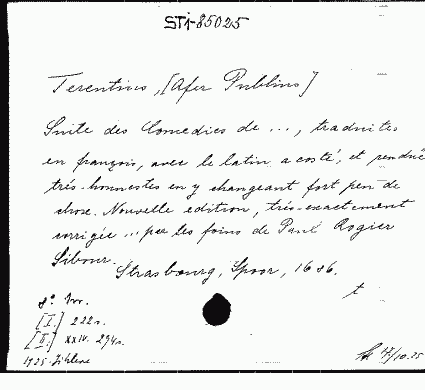 STi-85025
Terentius, [Afer Publius]
Suite des Comedies de ..., traduites
en françois, avec le latin a costé, et rendue
très-honnestes en y changeant fort peu de
chose. Nouvelle edition, très-exactement
corrigée ... par les soins de Paul Rogier
Sibour.
Strasbourg, Spoor, 1686.
t
8° Vor.
[I.] 222 s.
[II.] XXIV. 294 s.
1925.
17/10.25